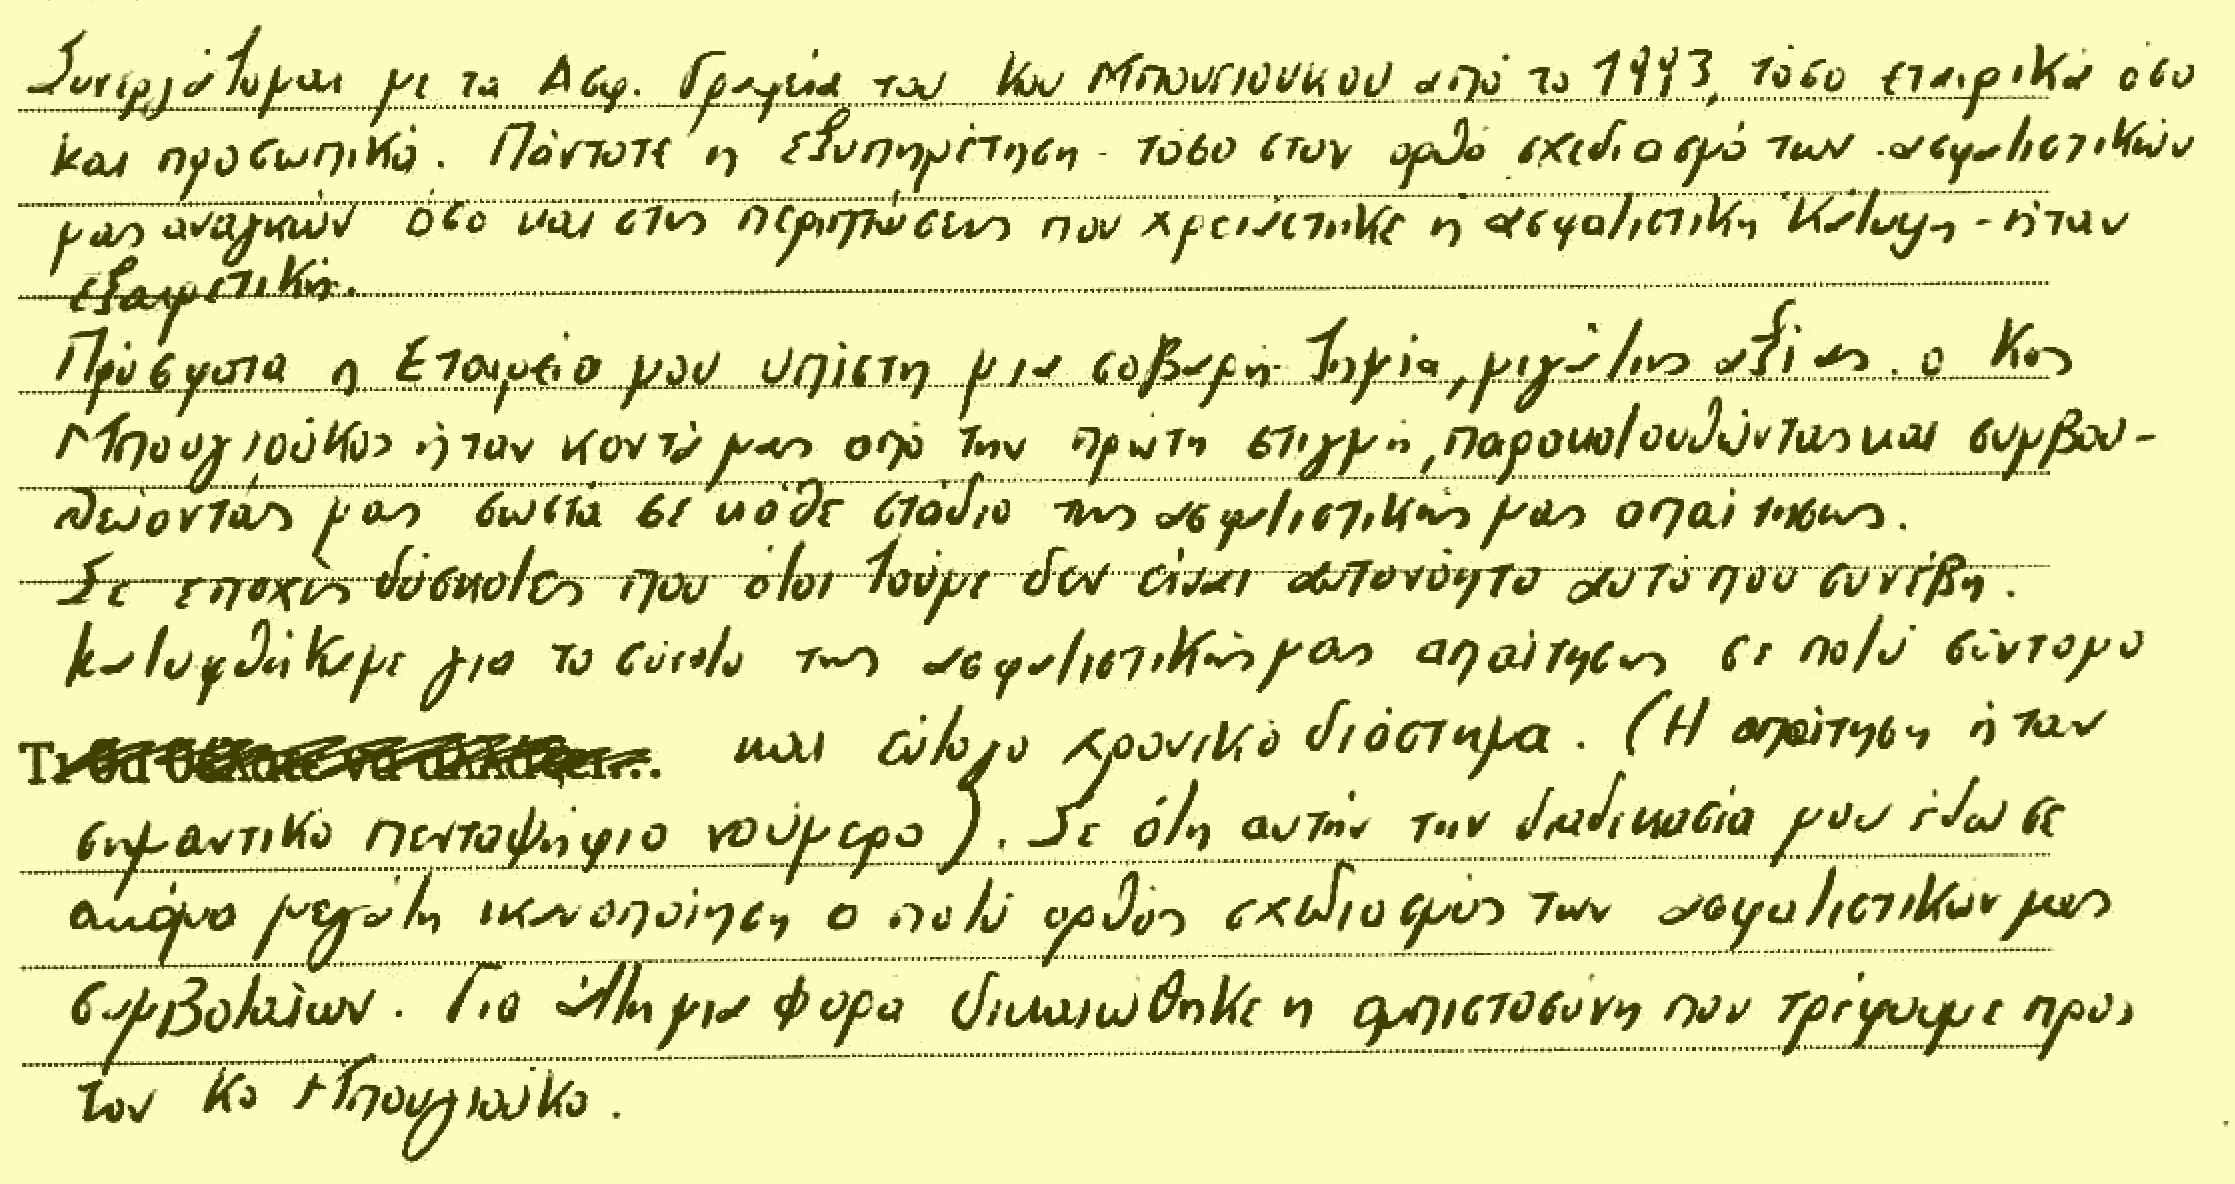 Συνεργάζομαι με τα Ασφ. Γραφεία του Κου Μπουγιούκου από το 1993, τόσο εταιρικά όσο
και προσωπικά. Πάντοτε η εξυπηρέτηση - τόσο στον ορθό σχεδιασμό των ασφαλιστικών
μας αναγκών όσο και στις περιπτώσεις που χρειάστηκε η ασφαλιστική κάλυψη - ήταν
εξαιρετική.
Πρόσφατα η Εταιρεία μου υπέστη μια σοβαρή ζημία, μεγάλης αξίας. ο Κος
Μπουγιούκος ήταν κοντά μας από την πρώτη στιγμή, παρακολουθώντας και συμβου-
λεύοντάς μας σωστά σε κάθε στάδιο της ασφαλιστικής μας απαίτησης.
Σε εποχές δύσκολες που όλοι ζούμε δεν είναι αυτονόητο αυτό που συνέβη.
Καλυφθήκαμε για το σύνολο της ασφαλιστικής μας απαίτησης σε πολύ σύντομο
και εύλογο χρονικό διάστημα. (Η απαίτηση ήταν
σημαντικό πενταψήφιο νούμερο). Σε όλη αυτήν την διαδικασία μου έδωσε
ακόμα μεγάλη ικανοποίηση ο πολύ ορθός σχεδιασμός των ασφαλιστικών μας
συμβολαίων. Για άλλη μια φορά δικαιώθηκε η εμπιστοσύνη που τρέφουμε προς
τον Κο Μπουγιούκο.